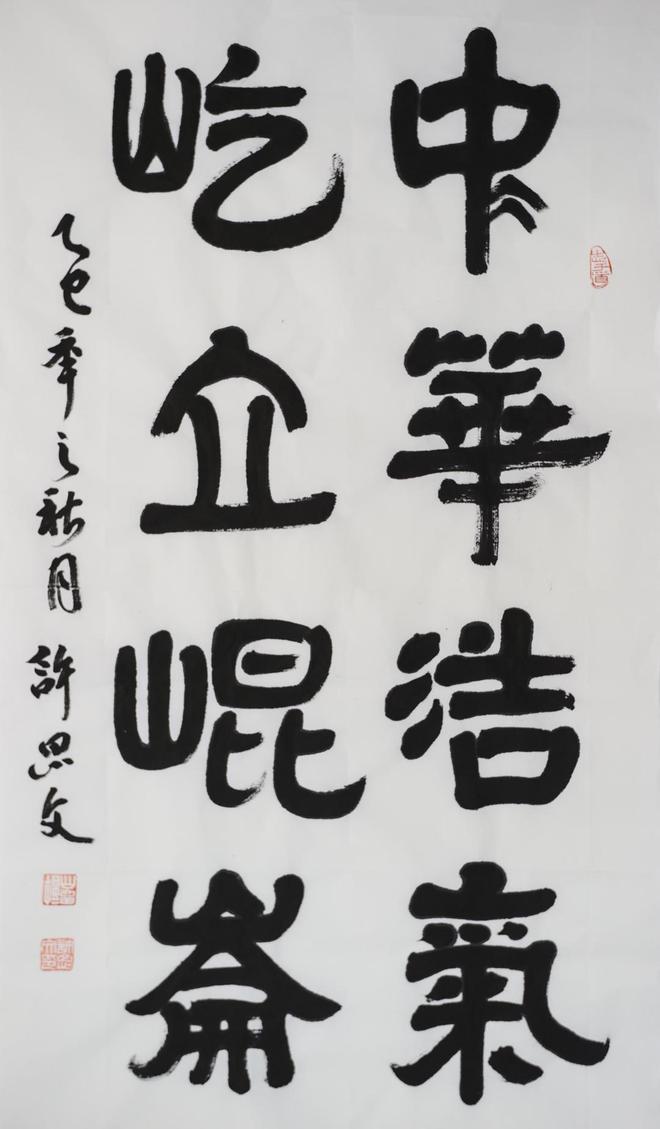 中華浩氣
屹立崐崙
乙巳年之秋月 許思文